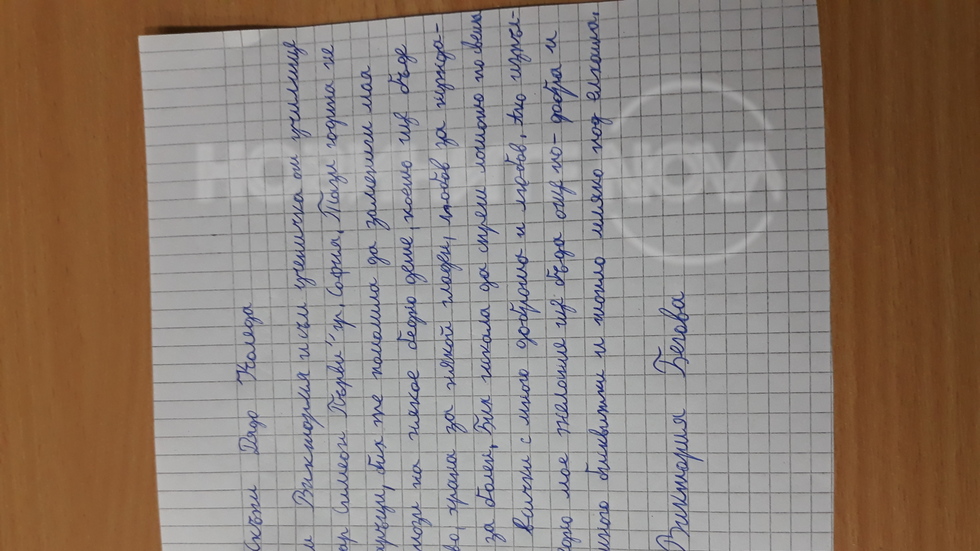 Скъпи Дядо Коледа
м Виктория и съм ученичка от училище
ар Симеон Първи" гр. София. Тази година не
аръци, бих те помолила да замениш моя
мози на някое бедно дете, което ще бъде
во, храна за някой гладен, любов за нужда-
за болен. Бих искала да спреш лошото по света
всички с много доброта и любов. Ако изпъл-
едно мое желание ще бъда още по-добра и
много бисквитки и топло мляко под елхата.
Виктория Бегова